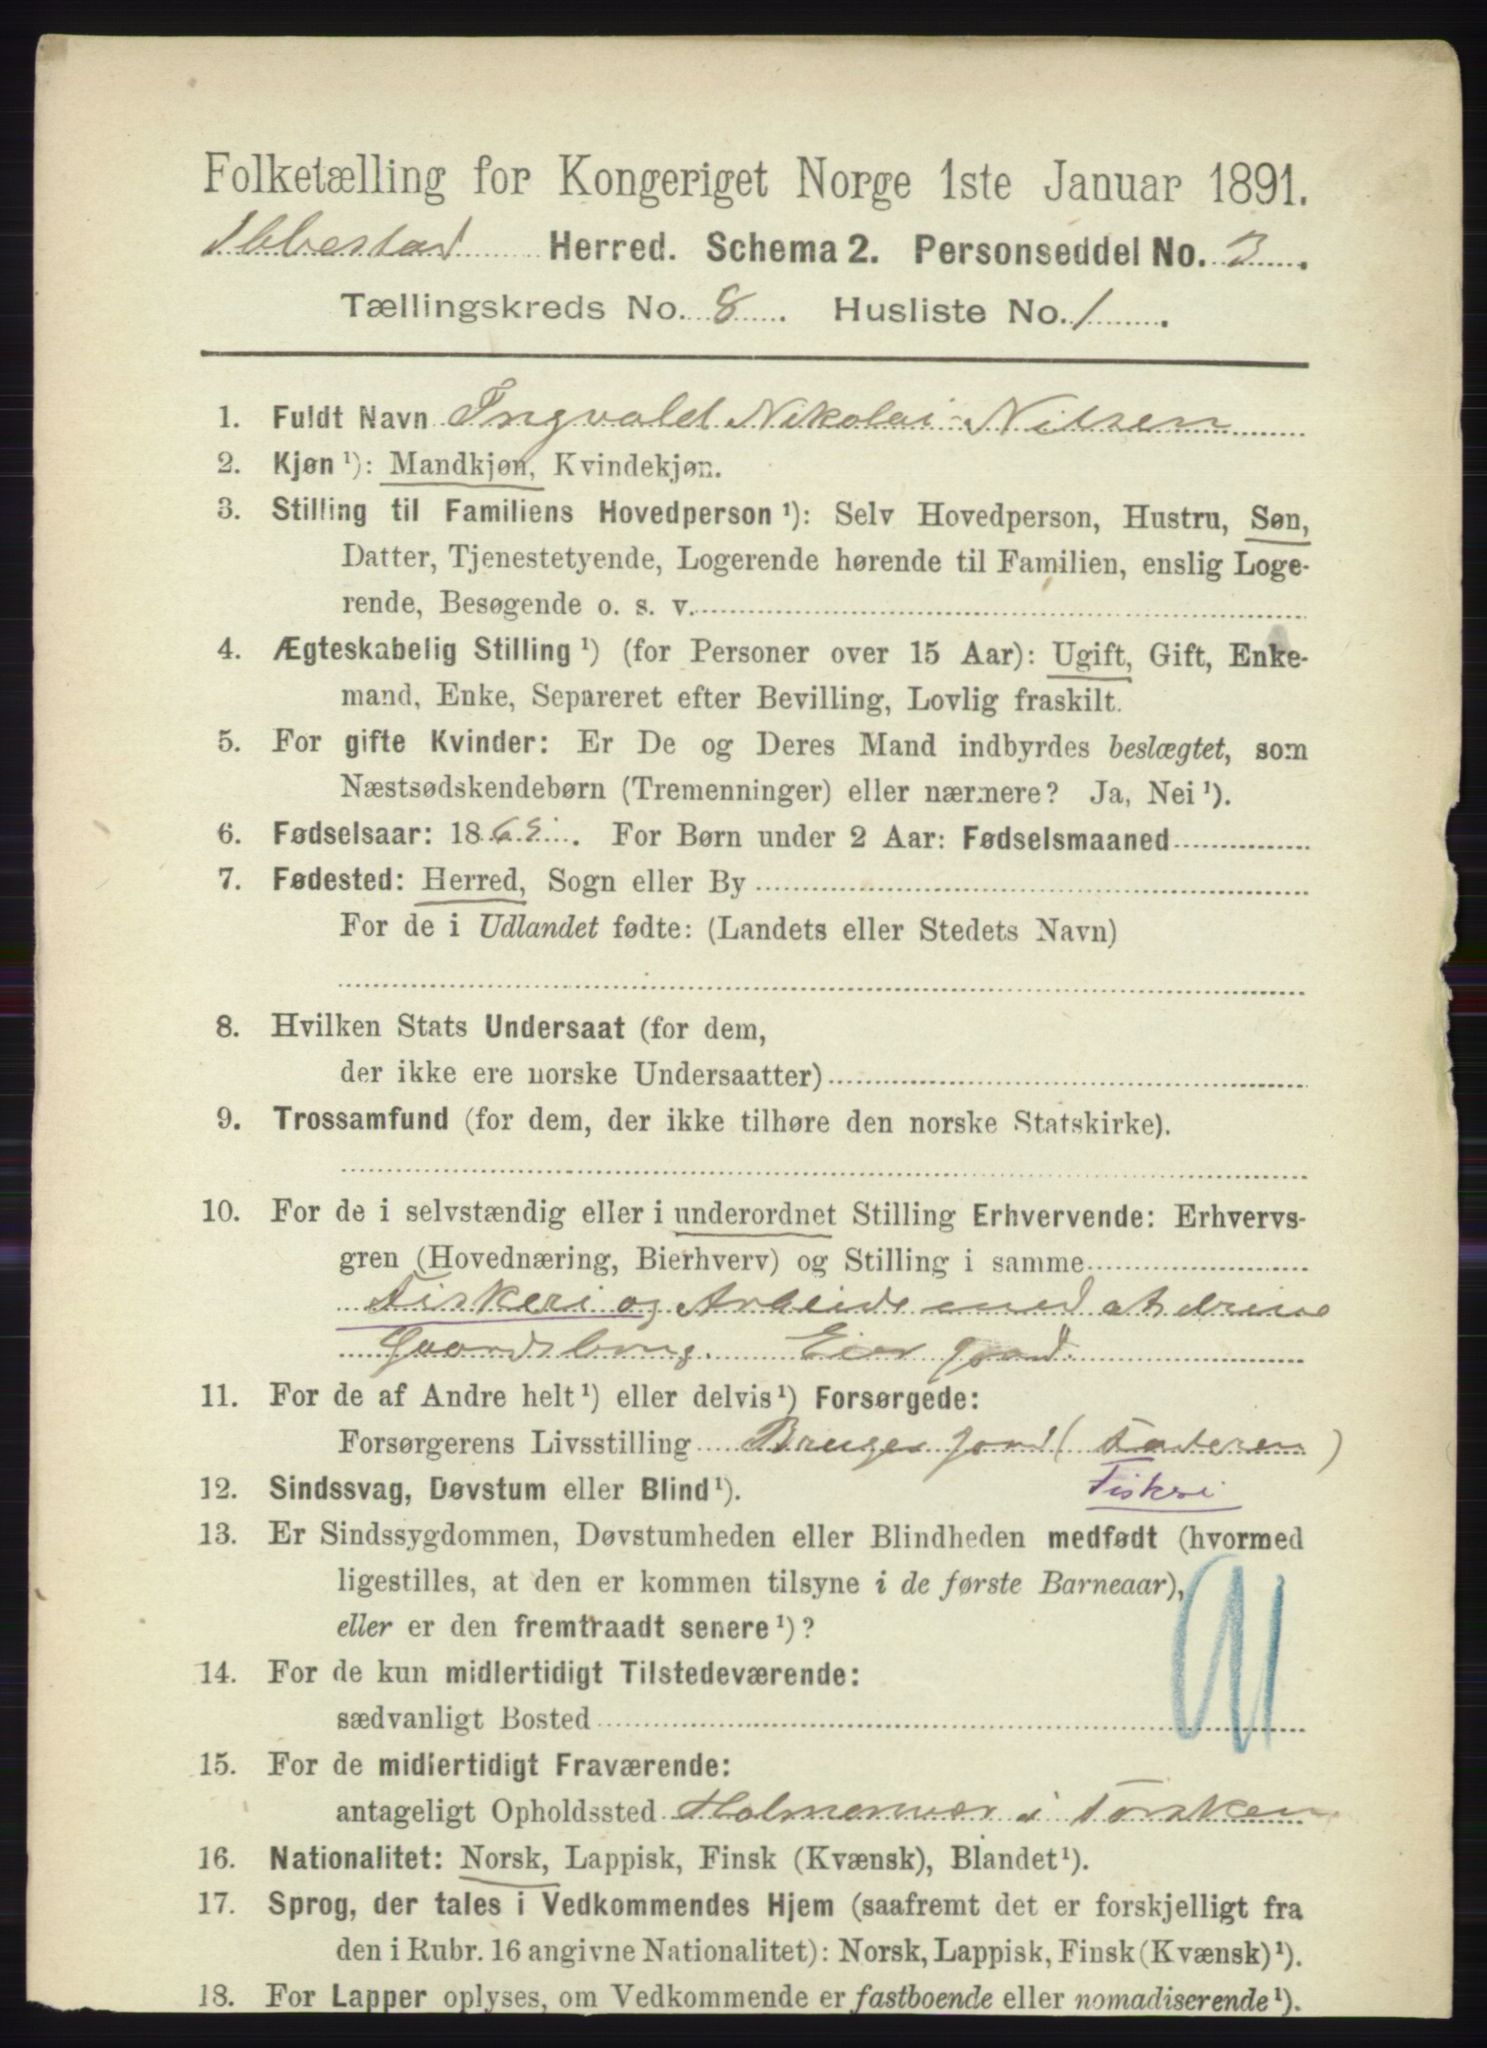 Folketælling for Kongeriget Norge 1ste Januar 1891.
Ibbestad Herred. Schema 2. Personseddel No. 3.
Tællingskreds No. 8. Husliste No. 1.
1. Fuldt Navn Ingvald Nikolai Nilsen
2. Kjøn ¹): Mandkjøn, Kvindekjøn.
3. Stilling til Familiens Hovedperson ¹): Selv Hovedperson, Hustru, Søn,
Datter, Tjenestetyende, Logerende hørende til Familien, enslig Loge-
rende, Besøgende o. s. v.
4. Ægteskabelig Stilling ¹) (for Personer over 15 Aar): Ugift, Gift, Enke-
mand, Enke, Separeret efter Bevilling, Lovlig fraskilt.
5. For gifte Kvinder: Er De og Deres Mand indbyrdes beslægtet, som
Næstsødskendebørn (Tremenninger) eller nærmere? Ja, Nei ¹).
6. Fødselsaar: 18 . For Børn under 2 Aar: Fødselsmaaned
7. Fødested: Herred, Sogn eller By
For de i Udlandet fødte: (Landets eller Stedets Navn)
8. Hvilken Stats Undersaat (for dem,
der ikke ere norske Undersaatter)
9. Trossamfund (for dem, der ikke tilhøre den norske Statskirke).
10. For de i selvstændig eller i underordnet Stilling Erhvervende: Erhvervs-
gren (Hovednæring, Bierhverv) og Stilling i samme
Fiskeri og Arbeide med at drive
Gaardsbrug. Eier Jord.
11. For de af Andre helt ¹) eller delvis ¹) Forsørgede:
Forsørgerens Livsstilling Bruger Jord (Faderen)
12. Sindssvag, Døvstum eller Blind ¹). Fiskeri
13. Er Sindssygdommen, Døvstumheden eller Blindheden medfødt (hvormed
ligestilles, at den er kommen tilsyne i de første Barneaar),
eller er den fremtraadt senere ¹)?
14. For de kun midlertidigt Tilstedeværende:
sædvanligt Bosted
15. For de midlertidigt Fraværende:
antageligt Opholdssted Holmenvær i Torsken
16. Nationalitet: Norsk, Lappisk, Finsk (Kvænsk), Blandet ¹).
17. Sprog, der tales i Vedkommendes Hjem (saafremt det er forskjelligt fra
den i Rubr. 16 angivne Nationalitet): Norsk, Lappisk, Finsk (Kvænsk) ¹).
18. For Lapper oplyses, om Vedkommende er fastboende eller nomadiserende ¹).